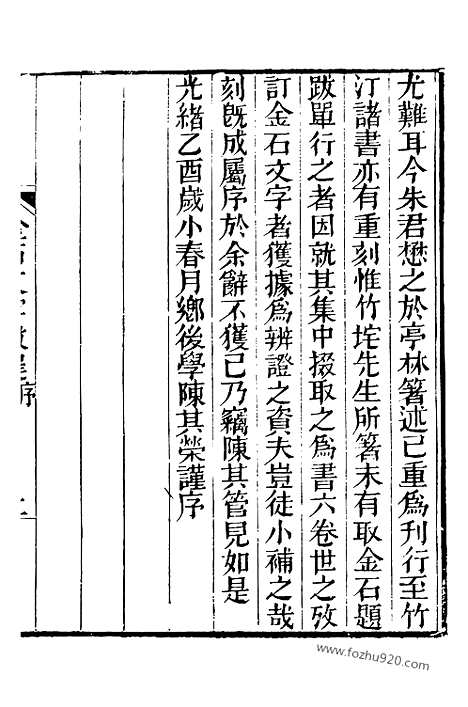 尤難耳今朱君懋之於亭林箸述已重爲刊行至竹
汀諸書亦有重刻惟竹垞先生所箸未有取金石題
跋單行之者因就其集中掇取之爲書六卷世之攷
訂金石文字者獲據爲辨證之資夫豈徒小補之哉
刻旣成屬序於余辭不獲已乃竊陳其管見如是
光緒乙酉歲小春月鄉後學陳其榮謹序
www.fozhu920.com